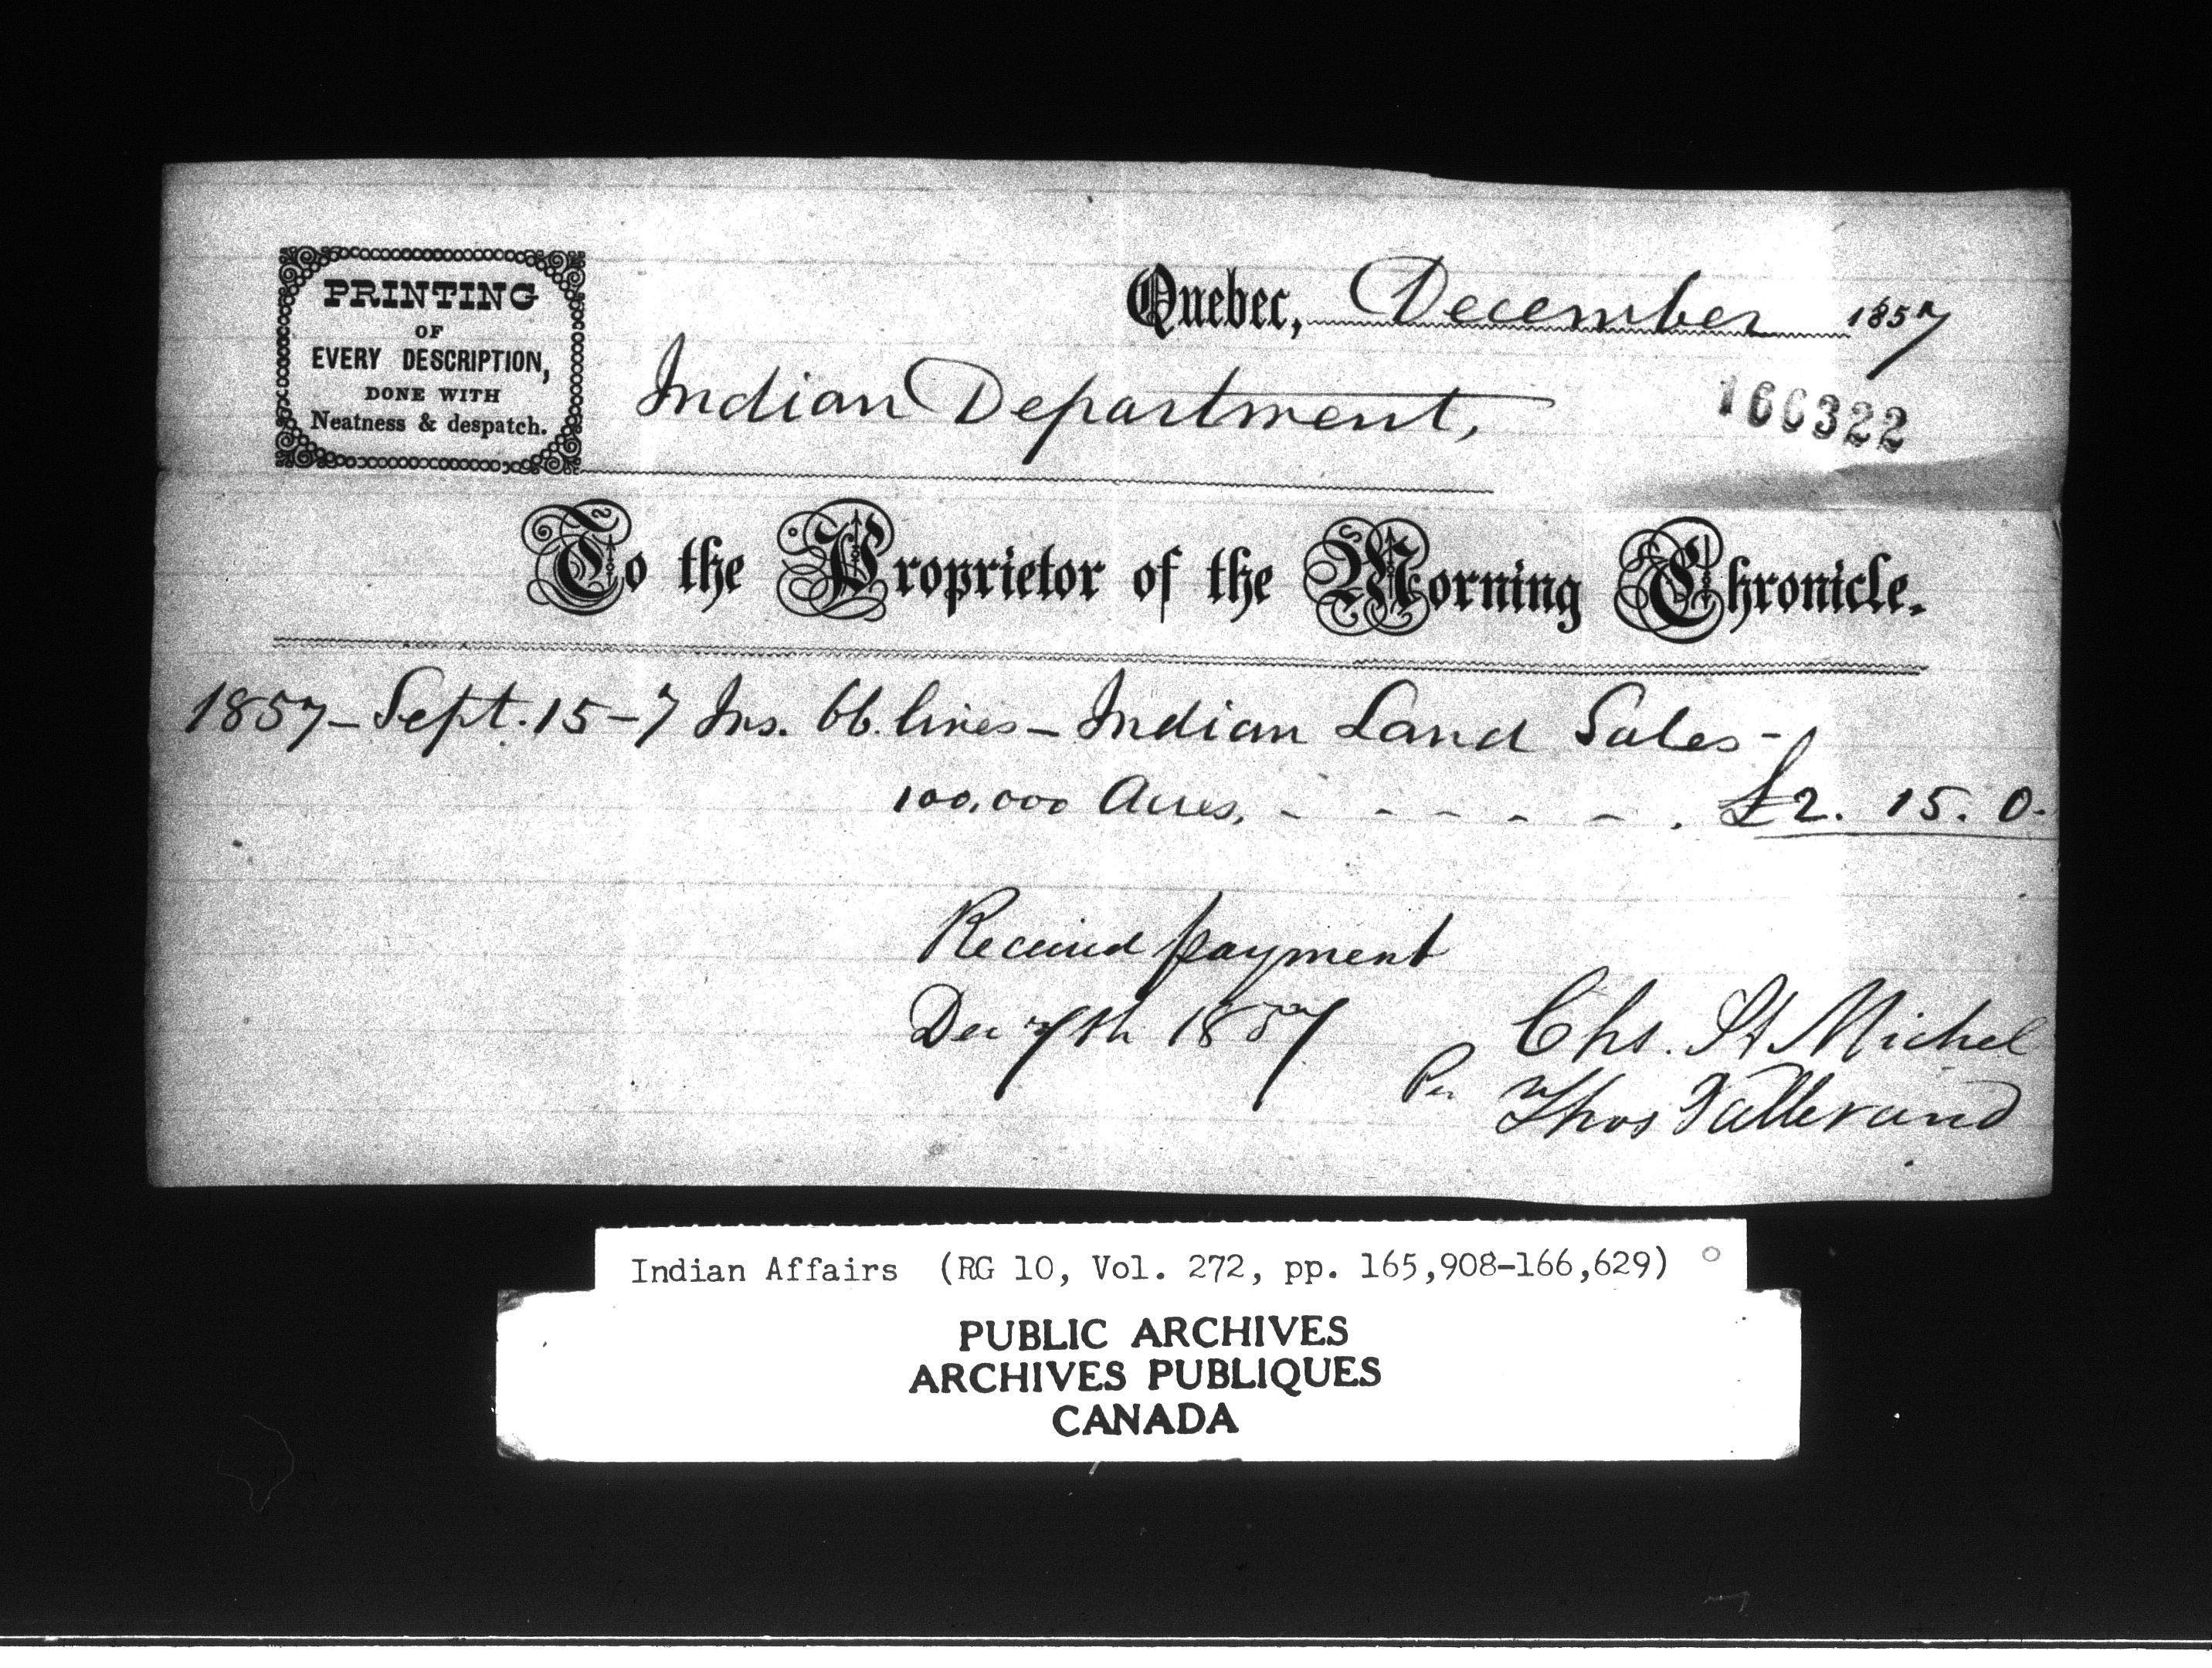 PRINTING
OF
EVERY DESCRIPTION,
DONE WITH
Neatness & despatch.
Quebec, December 1857
Indian Department,
166322
To the Proprietor of the Morning Chronicle.
1857 - Sept. 15 - 7 Ins. 66. lines - Indian Land Sales -
100,000 Acres, - - - - - . £2. 15. 0.
Received payment
Dec 7th 1857
Chs. St Michel
Per Thos Vallerand
Indian Affairs (RG 10, Vol. 272, pp. 165,908-166,629)
PUBLIC ARCHIVES
ARCHIVES PUBLIQUES
CANADA